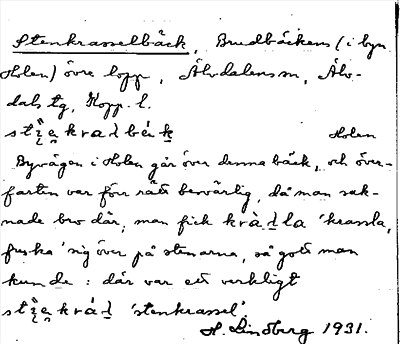 Stenkrasselbäck, Brudbäckens (i byn
Holen) övre lopp, Älvdalens sn, Älv-
dals tg, Kopp. l.
Holen
Byvägen i Holen går över denna bäck, och över-
farten var förr rätt besvärlig, då man sak-
nade bro där; man fick 'krassla,
fuska' sig över på stenarna, så gott man
kunde: där var ett verkligt
'stenkrassel'
H. Lindberg 1931.